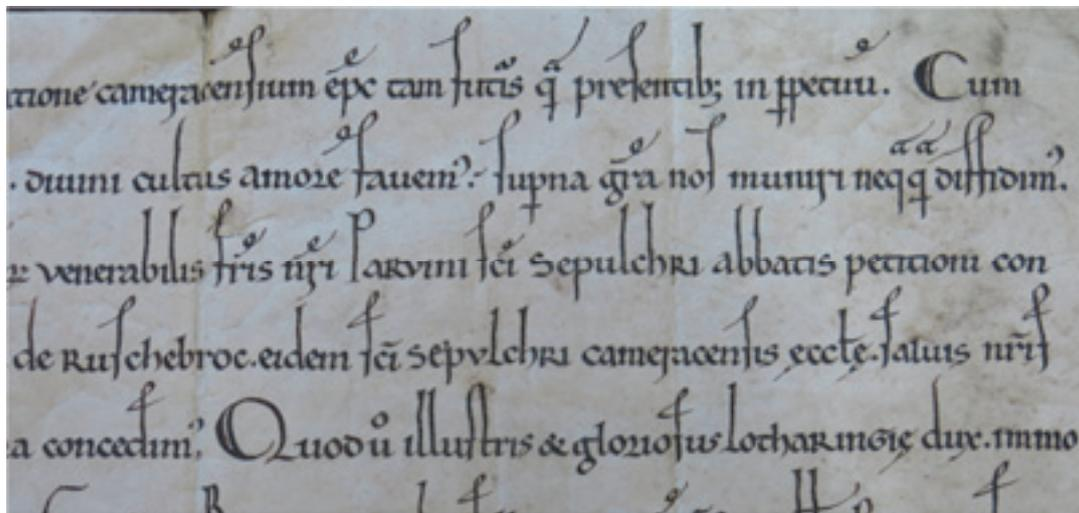 cameracensium ep̄c tam futuris q̄ presentib; in ꝑpetuū. Cum
. diuini cultus amore fauem᷒. supna gr̄a nos muniri neq̄q̄ diffidim᷒.
venerabilis fr̄is nr̄i Parvini sc̄i Sepulchri abbatis petitioni con
de Ruschebroc. eidem sc̄i Sepvlchri cameracensis ęccłę. saluis nr̄is
a concedim᷒. Quod ů illustris & gloriosus Lotharingię dux. immo